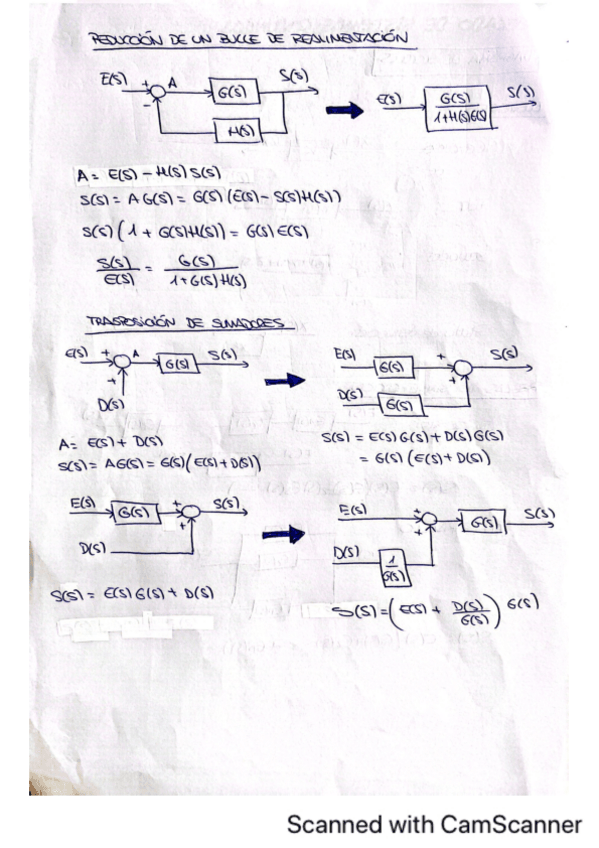 REDUCCIÓN DE UN BUCLE DE REALIMENTACIÓN
E(S) + A G(S) S(S) E(S) G(S) S(S)
- H(S) 1+H(S)G(S)
A = E(S) - H(S) S(S)
S(S) = A G(S) = G(S) (E(S) - S(S)H(S))
S(S) (1 + G(S)H(S)) = G(S) E(S)
S(S) = G(S)
E(S) 1+G(S)H(S)
TRASPOSICIÓN DE SUMADORES
E(S) + A G(S) S(S) E(S) G(S) + S(S)
+ D(S) D(S) G(S) +
A = E(S) + D(S) S(S) = E(S)G(S) + D(S)G(S)
S(S) = AG(S) = G(S) (E(S) + D(S)) = G(S) (E(S) + D(S))
E(S) G(S) + S(S) E(S) + G(S) S(S)
D(S) + D(S) 1 +
G(S)
S(S) = E(S)G(S) + D(S) S(S) = (E(S) + D(S) ) G(S)
G(S)
Scanned with CamScanner